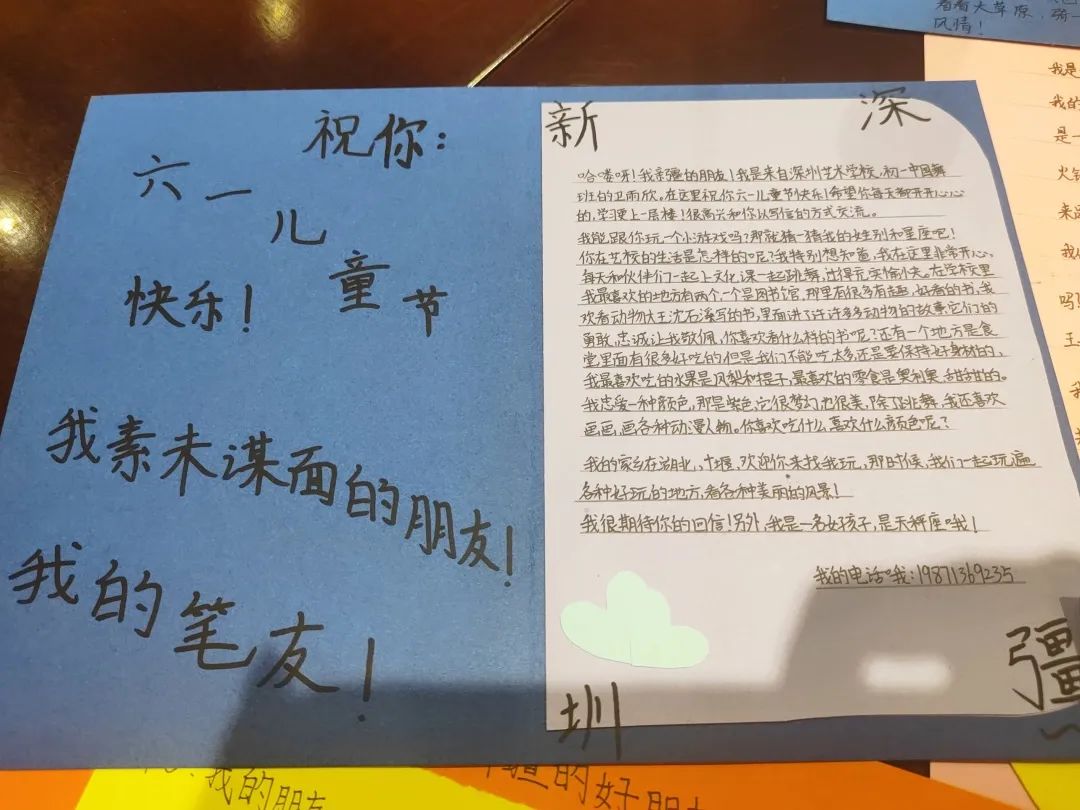 祝你：
六一儿童节
快乐！
我素未谋面的朋友！
我的笔友！
新 深
哈喽呀！我新疆的朋友！我是来自深圳艺术学校，初一中国舞
班的卫雨欣。在这里祝你六一儿童节快乐！希望你每天都开开心心
的，学习更上一层楼！很高兴和你以写信的方式交流。
我能跟你玩一个小游戏吗？那就猜一猜我的姓别和星座吧！
你在艺校的生活是怎样的呢？我特别想知道，我在这里非常开心，
每天和伙伴们一起上文化课一起跳舞，过得无忧愉快。在学校里
我最喜欢的地方有两个，一个是图书馆，那里有很多有趣，好看的书，我
欢看动物大王沈石溪写的书，里面讲了许许多多动物的故事，它们的
勇敢，忠诚让我敬佩，你喜欢看什么样的书呢？还有一个地方是食
堂里面有很多好吃的但是我们不能吃太多还是要保持好身材的，
我最喜欢吃的水果是凤梨和提子，最喜欢的零食是奥利奥，甜甜的。
我忠爱一种颜色，那是紫色，它很梦幻，也很美，除了跳舞，我还喜欢
画画，画各种动漫人物。你喜欢吃什么，喜欢什么颜色呢？
我的家乡在湖北，十堰，欢迎你来找我玩，那时候，我们一起玩遍
各种好玩的地方，看各种美丽的风景！
我很期待你的回信！另外，我是一名女孩子，是天秤座哦！
我的电话哦：19871369235
圳 疆
看看大草原，骑一
风情！
我是
我的
是一
火锅
来
我
吗
王
我的朋友
的好朋友